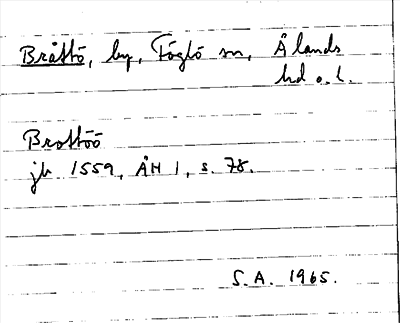 Bråttö, by, Föglö sn, Ålands
hd o. l.
Brottöö
jb. 1559, ÅH 1, s. 78.
S.A. 1965.